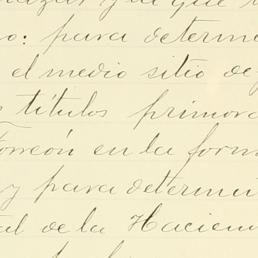 y la que
o: para determi
el medio sitio de
s títulos primor
Torreón en la form
y para determi
tal de la Hacien